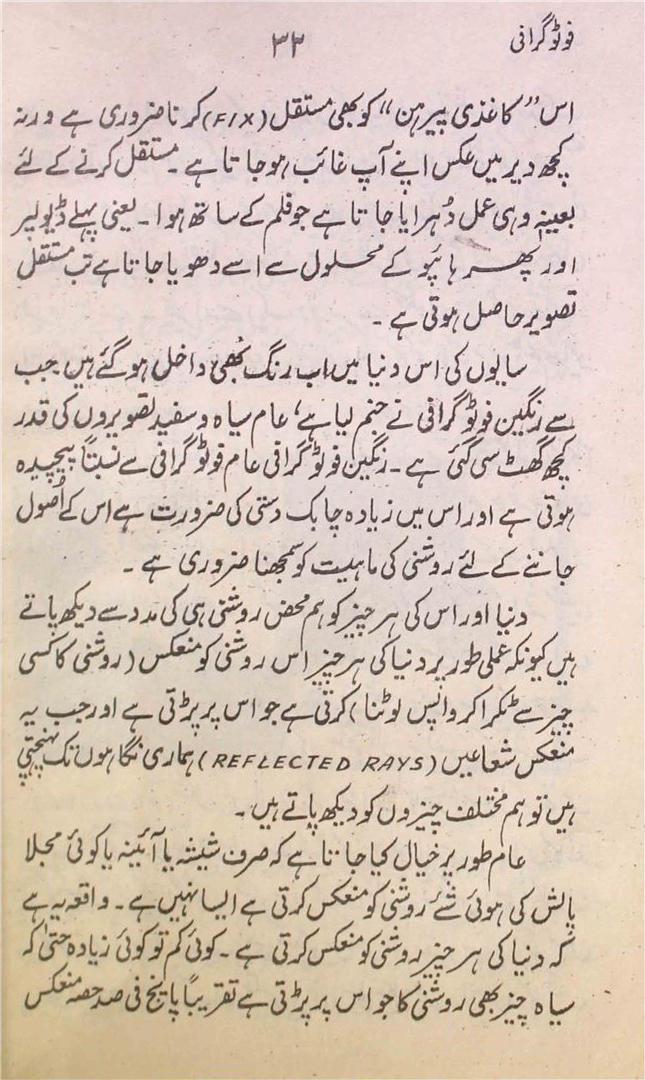 فوٹو گرافی
۳۲
اس "کاغذی پیرہن" کو بھی مستقل (FIX) کرنا ضروری ہے ورنہ
کچھ دیر میں عکس اپنے آپ غائب ہوجاتا ہے۔ مستقل کرنے کے لئے
بعینہٖ وہی عمل دُہرایا جاتا ہے جو فلم کے ساتھ ہوا۔ یعنی پہلے ڈیولپر
اور پھر ہائپو کے محلول سے اسے دھویا جاتا ہے تب مستقل
تصویر حاصل ہوتی ہے۔
سایوں کی اس دنیا میں اب رنگ بھی داخل ہو گئے ہیں جب
سے رنگین فوٹو گرافی نے جنم لیا ہے، عام سیاہ و سفید تصویروں کی قدر
کچھ گھٹ سی گئی ہے۔ رنگین فوٹو گرافی عام فوٹو گرافی سے نسبتاً پیچیدہ
ہوتی ہے اور اس میں زیادہ چابک دستی کی ضرورت ہے اس کے اُصول
جاننے کے لئے روشنی کی ماہیت کو سمجھنا ضروری ہے۔
دنیا اور اس کی ہر چیز کو ہم محض روشنی ہی کی مدد سے دیکھ پاتے
ہیں کیونکہ عملی طور پر دنیا کی ہر چیز اس روشنی کو منعکس (روشنی کا کسی
چیز سے ٹکرا کر واپس لوٹنا) کرتی ہے جو اس پر پڑتی ہے اور جب یہ
منعکس شعاعیں (REFLECTED RAYS) ہماری نگاہوں تک پہنچتی
ہیں تو ہم مختلف چیزوں کو دیکھ پاتے ہیں۔
عام طور پر خیال کیا جاتا ہے کہ صرف شیشہ یا آئینہ یا کوئی مجلا
پالش کی ہوئی شئے روشنی کو منعکس کرتی ہے ایسا نہیں ہے۔ واقعہ یہ ہے
کہ دنیا کی ہر چیز روشنی کو منعکس کرتی ہے۔ کوئی کم تو کوئی زیادہ حتیٰ کہ
سیاہ چیز بھی روشنی کا جو اس پر پڑتی ہے تقریباً پانچ فی صد حصہ منعکس